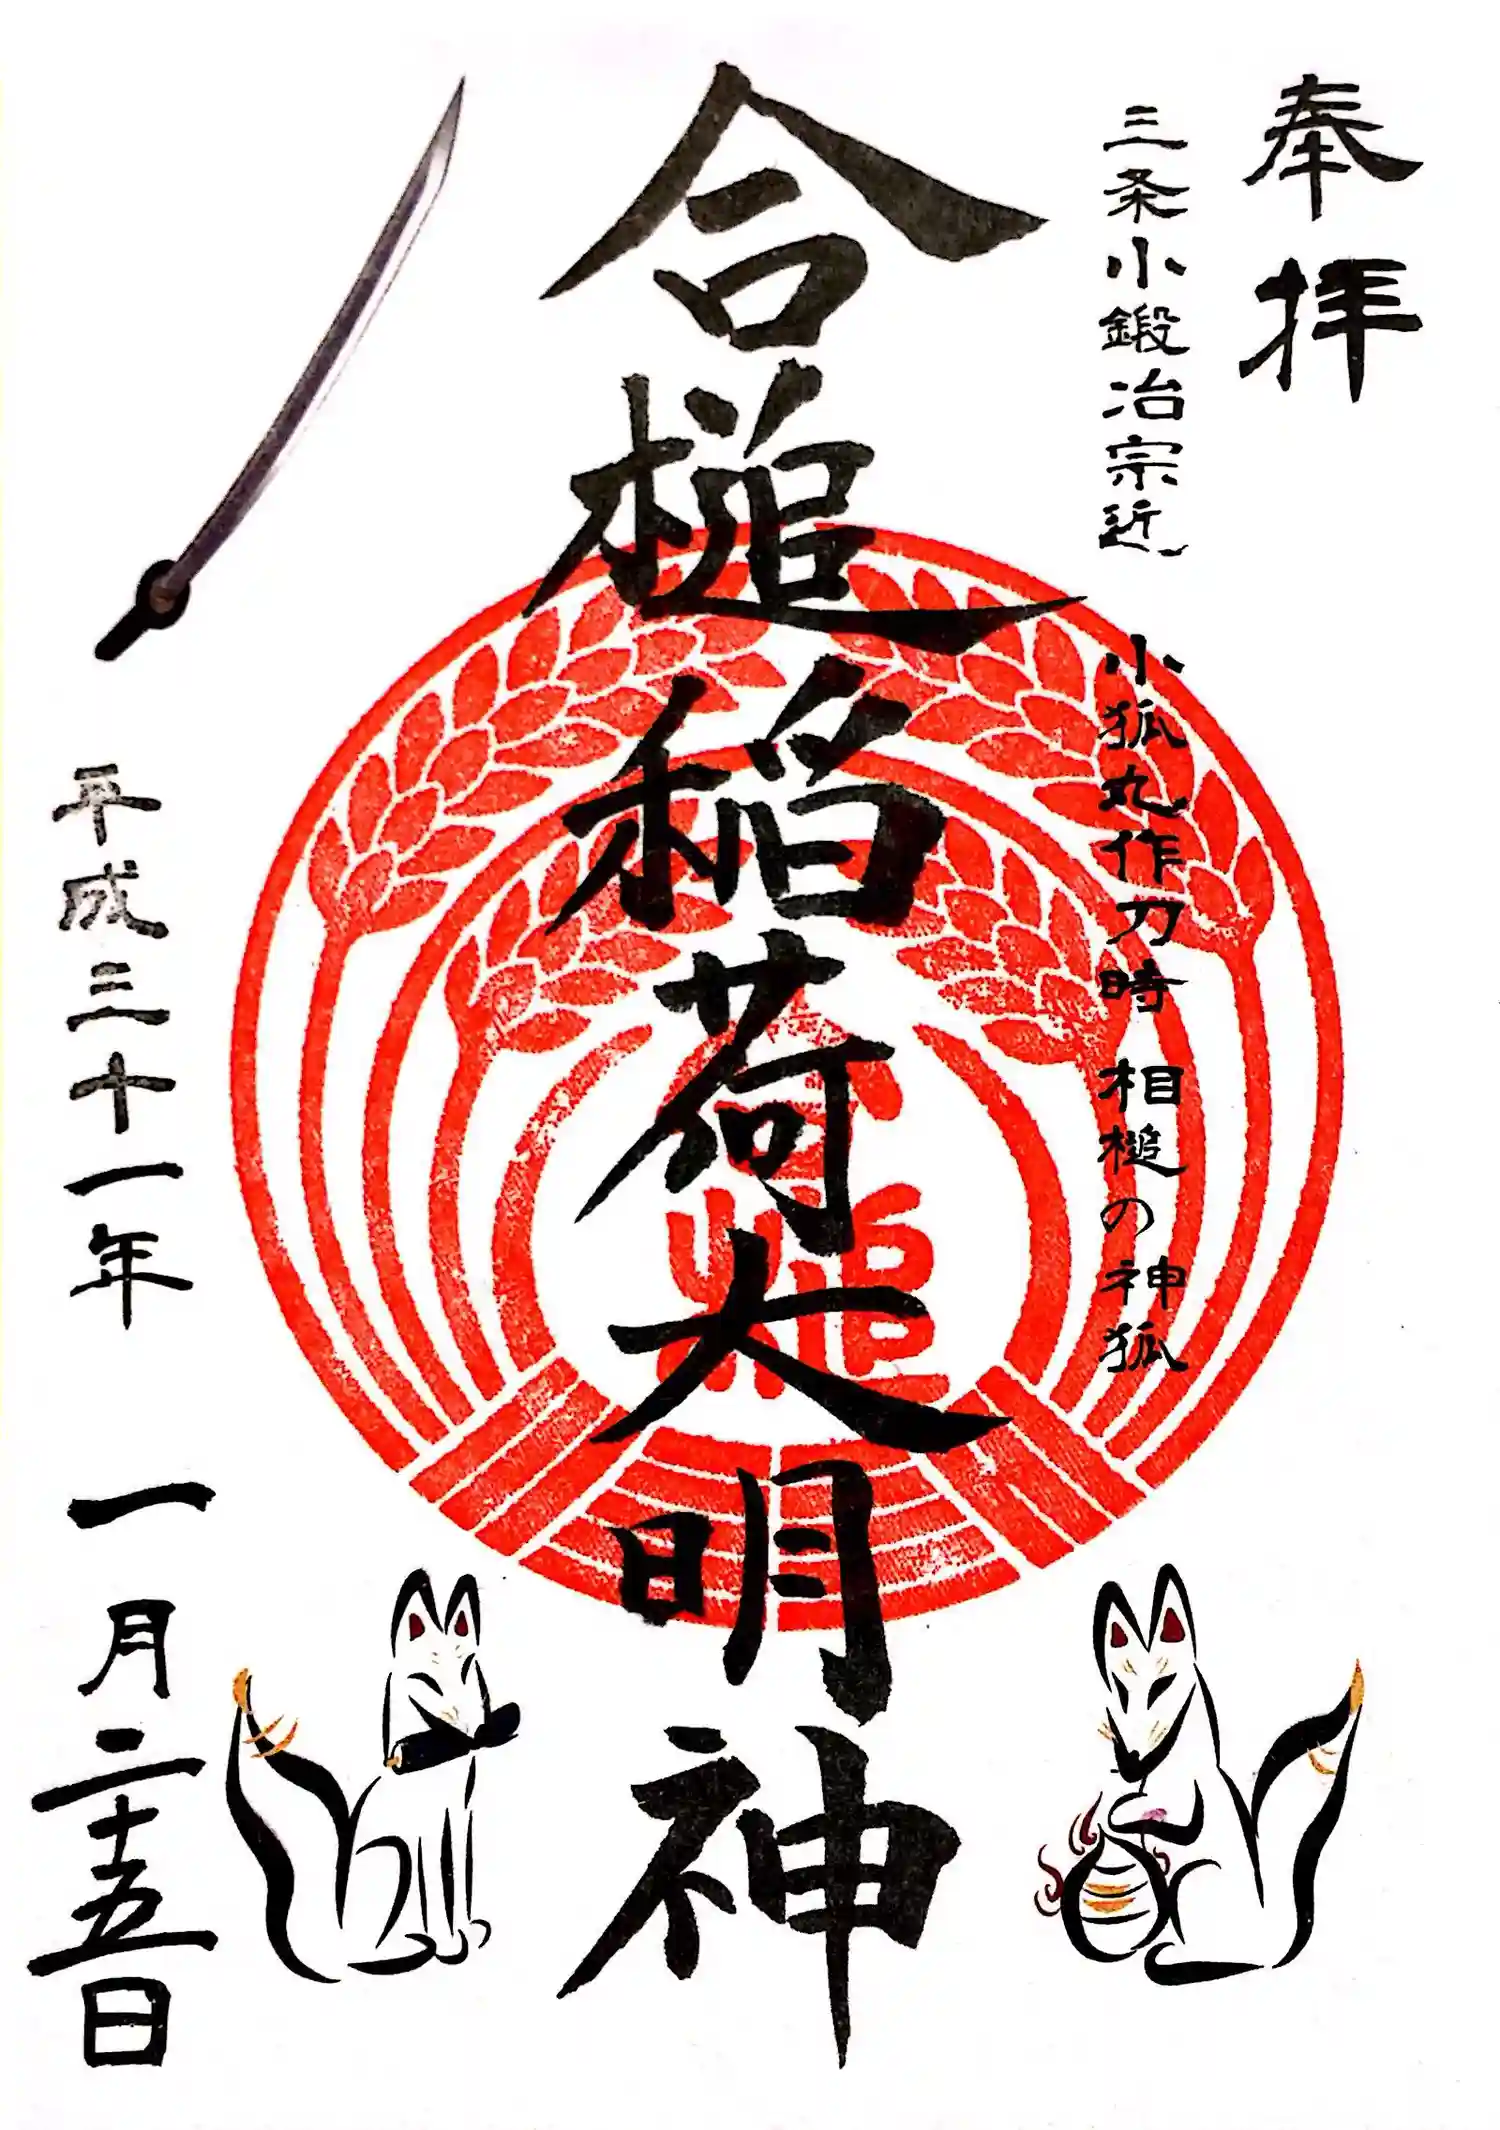 奉拝
三条小鍛冶宗近 小狐丸作刀時 相槌の神狐
合槌稲荷大明神
槌
平成三十一年 一月二十五日